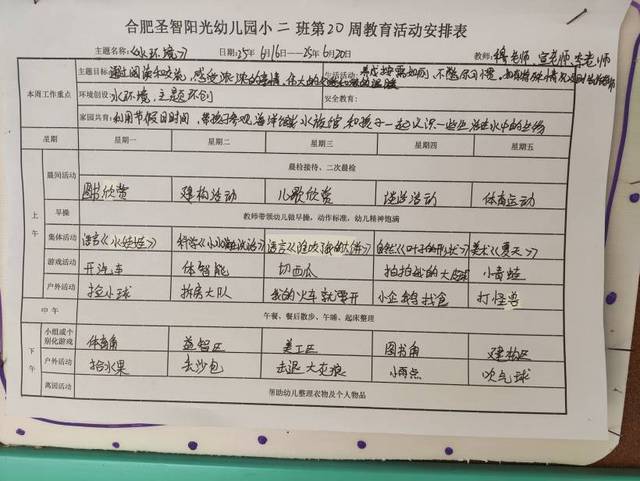 合肥圣智阳光幼儿园小二班第20周教育活动安排表
主题名称:《水环境》 日期:25年6月16—25年6月20日 教师:
本周工作重点 主题目标:通过阅读和交流,感受浓浓的 生活活动:
环境创设:水环境,主题环创 安全教育:
家园共育:利用节假日时间,带孩子参观海洋馆 水族馆 和孩子一起认识一些生活在水中的生物
星期 星期一 星期二 星期三 星期四 星期五
上午 晨间活动 晨检接待、二次晨检
图书欣赏 建构活动 儿歌欣赏 活动 体育运动
早操 教师带领幼儿做早操,动作标准,幼儿精神饱满
集体活动 语言《小水娃娃》 科学《小水滴 》 语言《谁咬了我的大饼》 《叶子的形状》 美术《夏天》
游戏活动 开汽车 体智能 切西瓜 拍拍我的大皮球 小青蛙
户外活动 捡小球 拆房大队 我的火车就要开 小企鹅找食 打怪兽
中午 午餐、餐后散步、午睡、起床整理
下午 小组或个别化游戏 体育角 益智区 美工区 图书角 建构区
户外活动 拾水果 丢沙包 击退大灰狼 小雨点 吹气球
离园活动 帮助幼儿整理衣物及个人物品